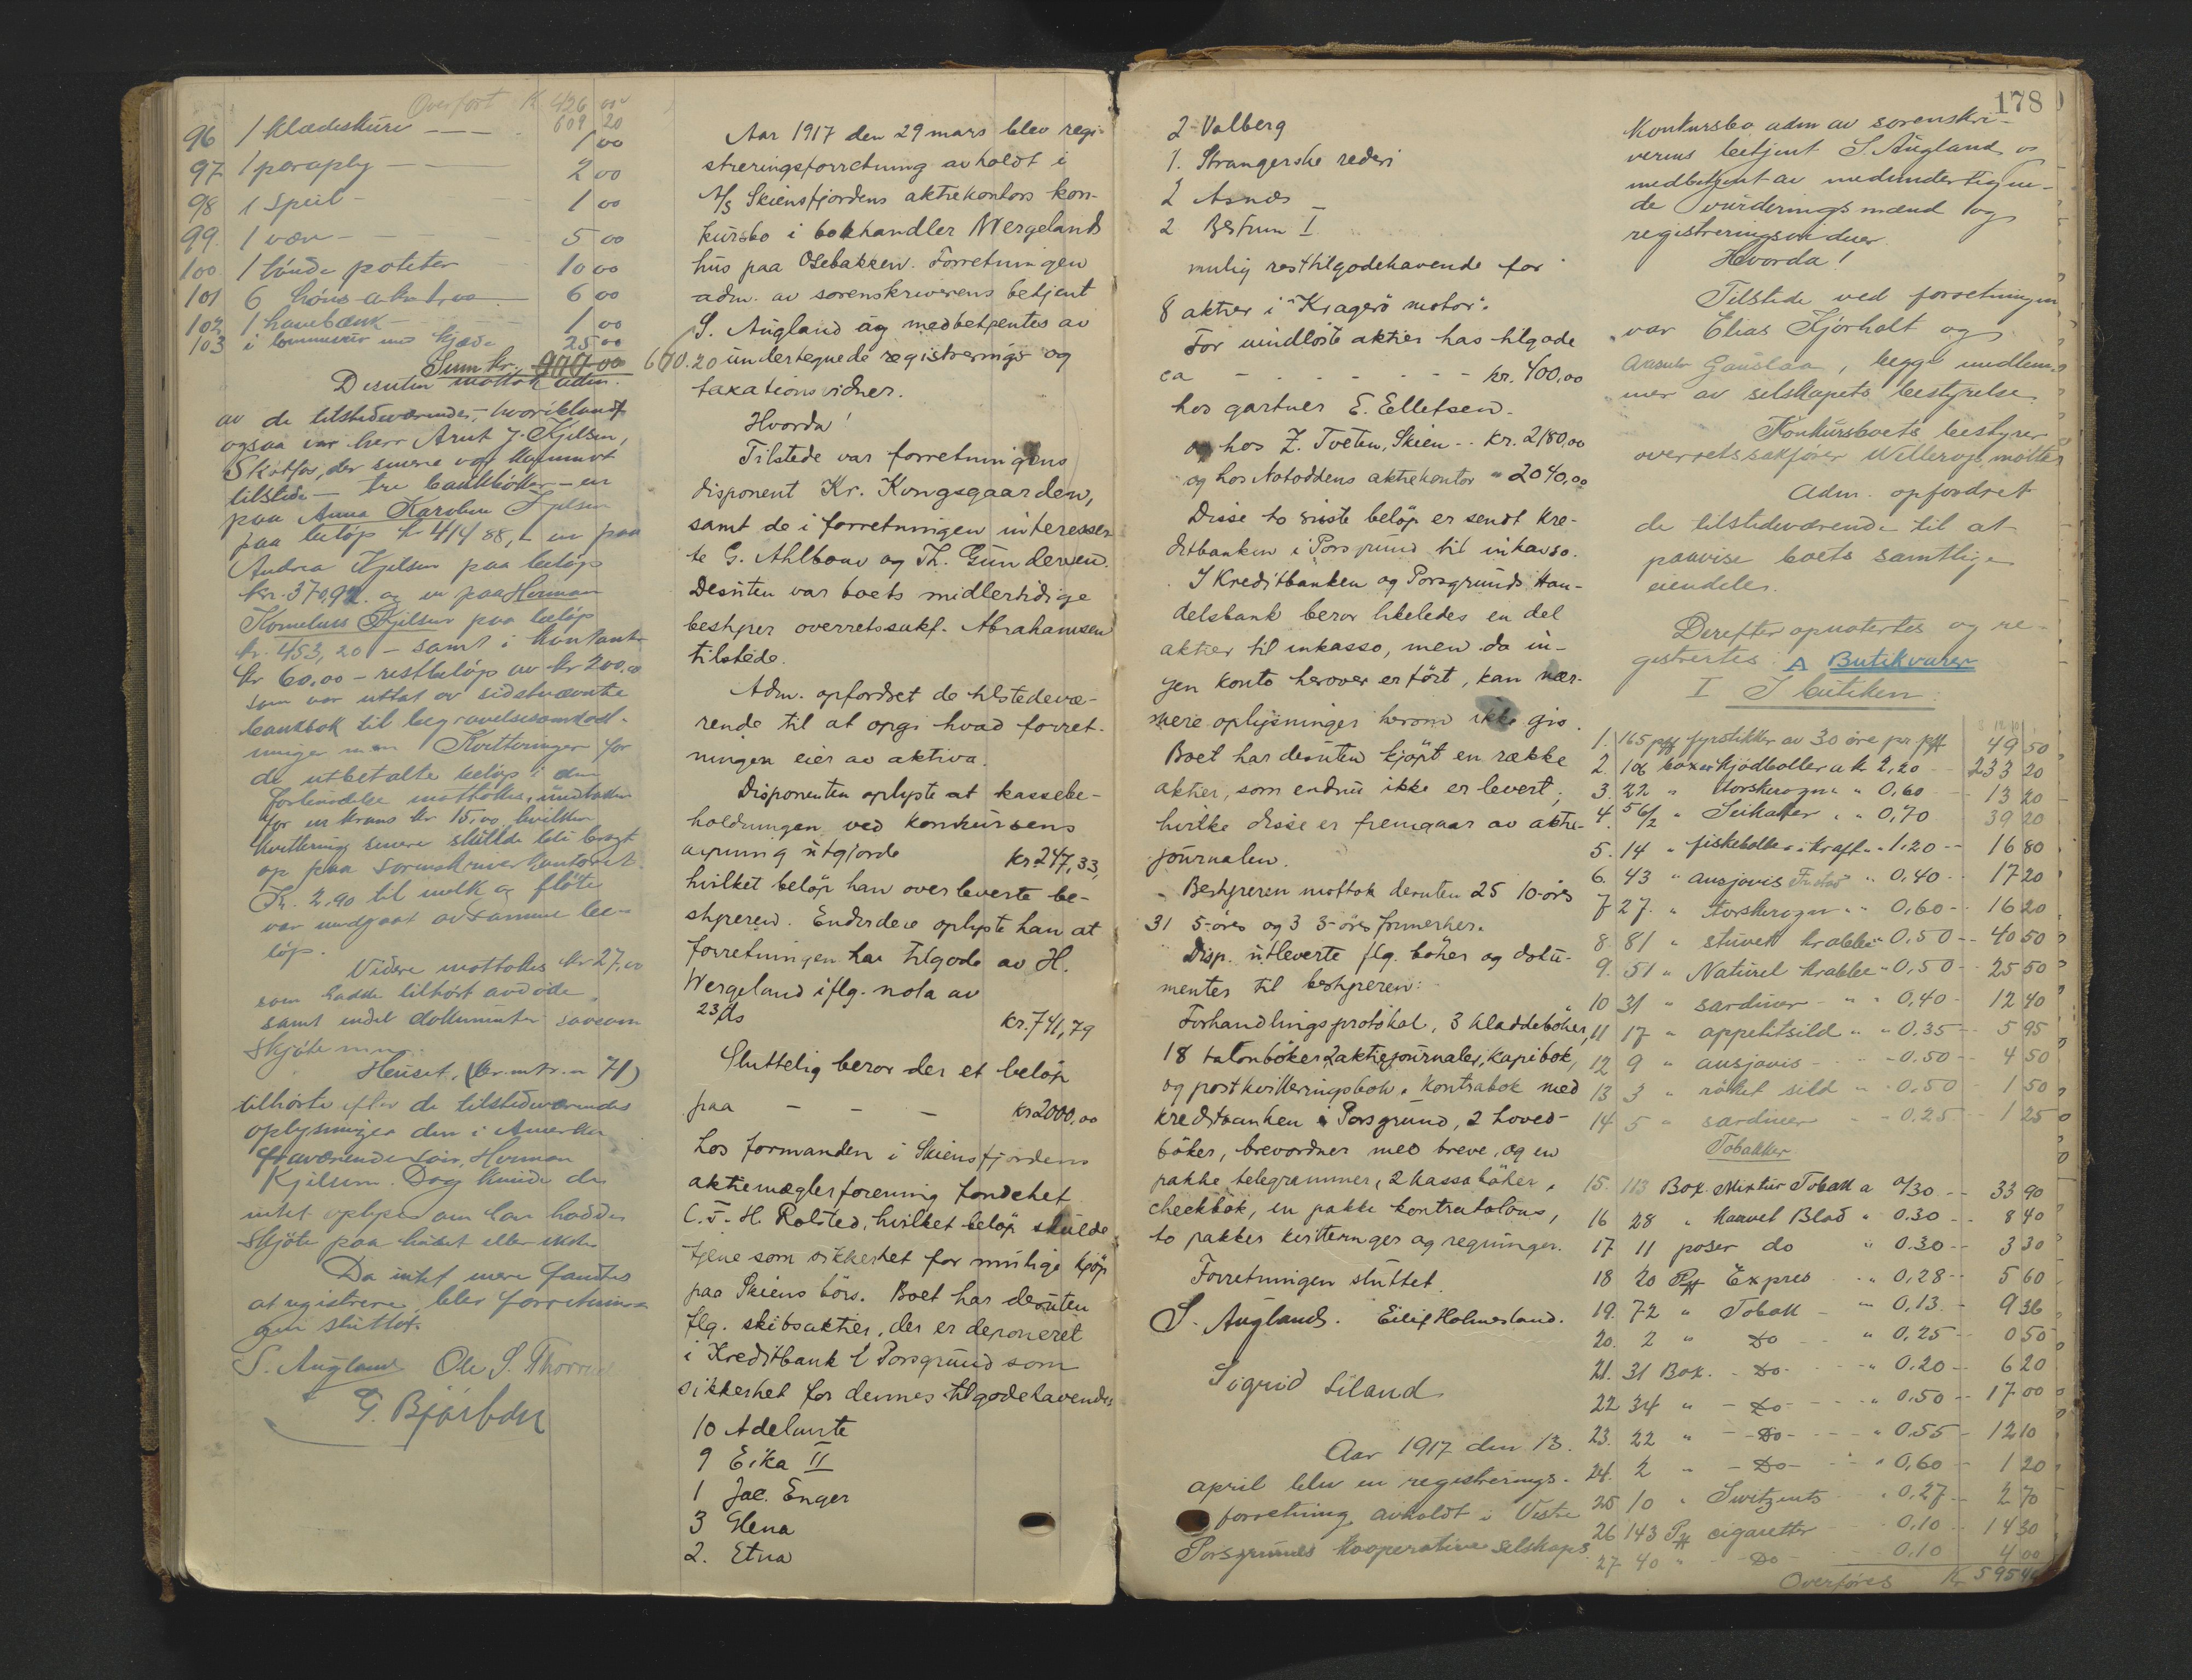 Overført K 426 00
609 20
96 1 klædeskurv — — 1 00
97 1 paraply — — 2 00
98 1 speil — 1 00
99. 1 væv — 5 00
100 1 tönde poteter 10 00
101 6 höns a kr 1,00 6 00
102 1 havebænk — 1 00
103 1 lommeur med kjæde 25 00
Sum kr. 670.20
Desuten mottok adm.
av de tilstedeværende, hvoriblandt
ogsaa var herr Arnt J. Kjelsen,
Skotfos, der senere var kommet
tilstede — tre bankböker — en
paa Anna Karoline Kjelsen
paa beløp kr 414 88, en paa
Andrea Kjelsen paa beløp
kr. 370,92 og en paa Herman
Kornelius Kjelsen paa beløp
kr. 453,20 — samt i kontant
kr 60.00 — restbeløp av kr 200,00
som var uttat av sidstnævnte
bankbok til begravelsesomkost-
ninger m.m. Kvitteringer for
de utbetalte beløp i den
forbindelse mottokes, undtatt
for en krans kr 15,00, hvilken
kvittering senere skulde bli bragt
op paa sorenskriverkontoret.
Kr. 2,90 til melk og fløte
var medgaat av samme be-
löp.
Videre mottokes kr 27,00
som hadde tilhørt avdøde
samt endel dokumenter saasom
skjøte m.m.
Huset, (br. m.tr. n 71)
tilhørte efter de tilstedeværendes
oplysninger den i Amerika
fraværende søn, Herman
Kjelsen. Dog kunde de
intet oplyse om han hadde
skjøte paa huset eller ikke.
Da intet mere fandtes
at registrere, blev forretnin-
gen sluttet.
S. Augland Ole S.
G. Björbæk
Aar 1917 den 29 mars blev regi-
streringsforretning avholdt i
A/S Skiensfjordens aktiekontors kon-
kursbo i bokhandler Wergelands
hus paa Osebakken. Forretningen
adm. av sorenskriverens betjent
S. Augland og medbetjentes av
undertegnede registrerings og
taxationsvidner.
Hvorda!
Tilstede var forretningens
disponent Kr. Kongsgaarden,
samt de i forretningen interesser-
te G. Ahlbom og Th. Gundersen.
Desuten var boets midlertidige
bestyrer overretssakf. Abrahamsen
tilstede.
Adm. opfordret de tilstedevæ-
rende til at opgi hvad forret-
ningen eier av aktiva.
Disponenten oplyste at kassebe-
holdningen ved konkursens
aapning utgjorde kr 247,33,
hvilket beløp han overleverte be-
styreren. Endvidere oplyste han at
forretningen har tilgode av H.
Wergeland iflg. nota av
23/ds kr. 741,79
Sluttelig beror der et beløp
paa — — — kr 2000,00
hos formanden i Skiensfjordens
aktiemæglerforening fondchef
C. F. H. Rolsted, hvilket beløp skulde
tjene som sikkerhet for mulige kjöp
paa Skiens börs. Boet har desuten
flg. skibsaktier, der er deponeret
i Kreditbank i Porsgrund som
sikkerhet for dennes tilgodehavende:
10 Adelante
9 Eika II
1 Jac. Enger
3 Glena
2. Etna
2 Valberg
1. Strangerske rederi
2 Asnæs
2 Bestum I
mulig resttilgodehavende for
8 aktier i "Kragerö motor".
For uindlöste aktier has tilgode
ca - - - - - - kr. 400,00
hos gartner E. Ellefsen.
og hos Z. Tveten, Skien - - kr. 2180,00
og hos Notoddens aktiekontor " 2040,00
Disse to siste beløp er sendt Kre-
ditbanken i Porsgrund til inkasso.
I Kreditbanken og Porsgrunds Han-
delsbank beror likeledes en del
aktier til inkasso, men da in-
gen konto herover er fört, kan nær-
mere oplysninger herom ikke gis.
Boet har desuten kjöpt en række
aktier, som endnu ikke er levert;
hvilke disse er fremgaar av aktie-
journalen.
Bestyreren mottok desuten 25 10-öres
31 5-öres og 3 3-öres frimerker.
Disp. utleverte flg. böker og doku-
menter til bestyreren:
Forhandlingsprotokol, 3 kladdeböker,
18 talonböker, 2 aktiejournaler, kopibok,
og postkvitteringsbok, kontrabok med
kreditbanken i Porsgrund, 2 hoved-
böker, brevordner med breve, og en
pakke telegrammer, 2 kassaböker,
checkbok, en pakke kontratalons,
to pakker kvitteringer og regninger.
Forretningen sluttet.
S. Augland. Eilif Holmesland.
Sigrid Liland
Aar 1917 den 13.
april blev en registrerings-
forretning avholdt i Vestre
Porsgrunds kooperative selskaps
178
konkursbo adm av sorenskri-
verens betjent S. Augland og
medbetjent av medundertegne-
de vurderingsmænd og
registreringsvidner.
Hvorda!
Tilstede ved forretningen
var Elias Kjørholt og
Gauslaa, begge medlem-
mer av selskapets bestyrelse.
Konkursboets bestyrer
overretssakfører Willerup møtte
Adm. opfordret
de tilstedeværende til at
paavise boets samtlige
eiendeler.
Derefter opnotertes og re-
gistrertes: A Butikvarer
I I butiken:
1. 165 pk fyrstikker av 30 øre pr pk 49 50
2. 106 boxer kjødboller a k 2,20 233 20
3. 22 " torskerogn " 0,60 13 20
4. 56/2 " Seikaker " " 0,70 39 20
5. 14 " fiskeboller i kraft " 1.20 16 80
6. 43 " ansjovis " 0,40 17 20
7 27. " torskerogn " 0,60 16 20
8. 81 " stuvet krabbe " 0,50 40 50
9. 51 " Naturel krabbe " 0,50 25 50
10 31 " sardiner " " 0,40 12 40
11 17 " appetitsild " " 0.35 5 95
12 9 " ansjovis - 0.50 4 50
13 3 " röket sild " 0,50 1 50
14 5 " sardiner - 0.25 1 25
Tobakker
15. 113 Box. Mixtur Tobak a 0/30 33 90
16 28 " Karvet Blad " 0.30 8 40
17 11 poser do " 0.30 3 30
18 20 Pk Expres " 0,28 5 60
19. 72 " Tobak " 0,13 9 36
20. 2 " Do " 0,25 0 50
21. 31 Box. Do " 0.20 6 20
22 34 " Do " 0,50 17 00
23. 22 " Do " 0,55 12 10
24. 2 " Do " 0,60 1 20
25 10 " Switzents " 0,27 2 70
26 143 Pk cigaretter 0,10 14 30
27 40 " Do 0,10 4 00
Overføres Kr 595 46